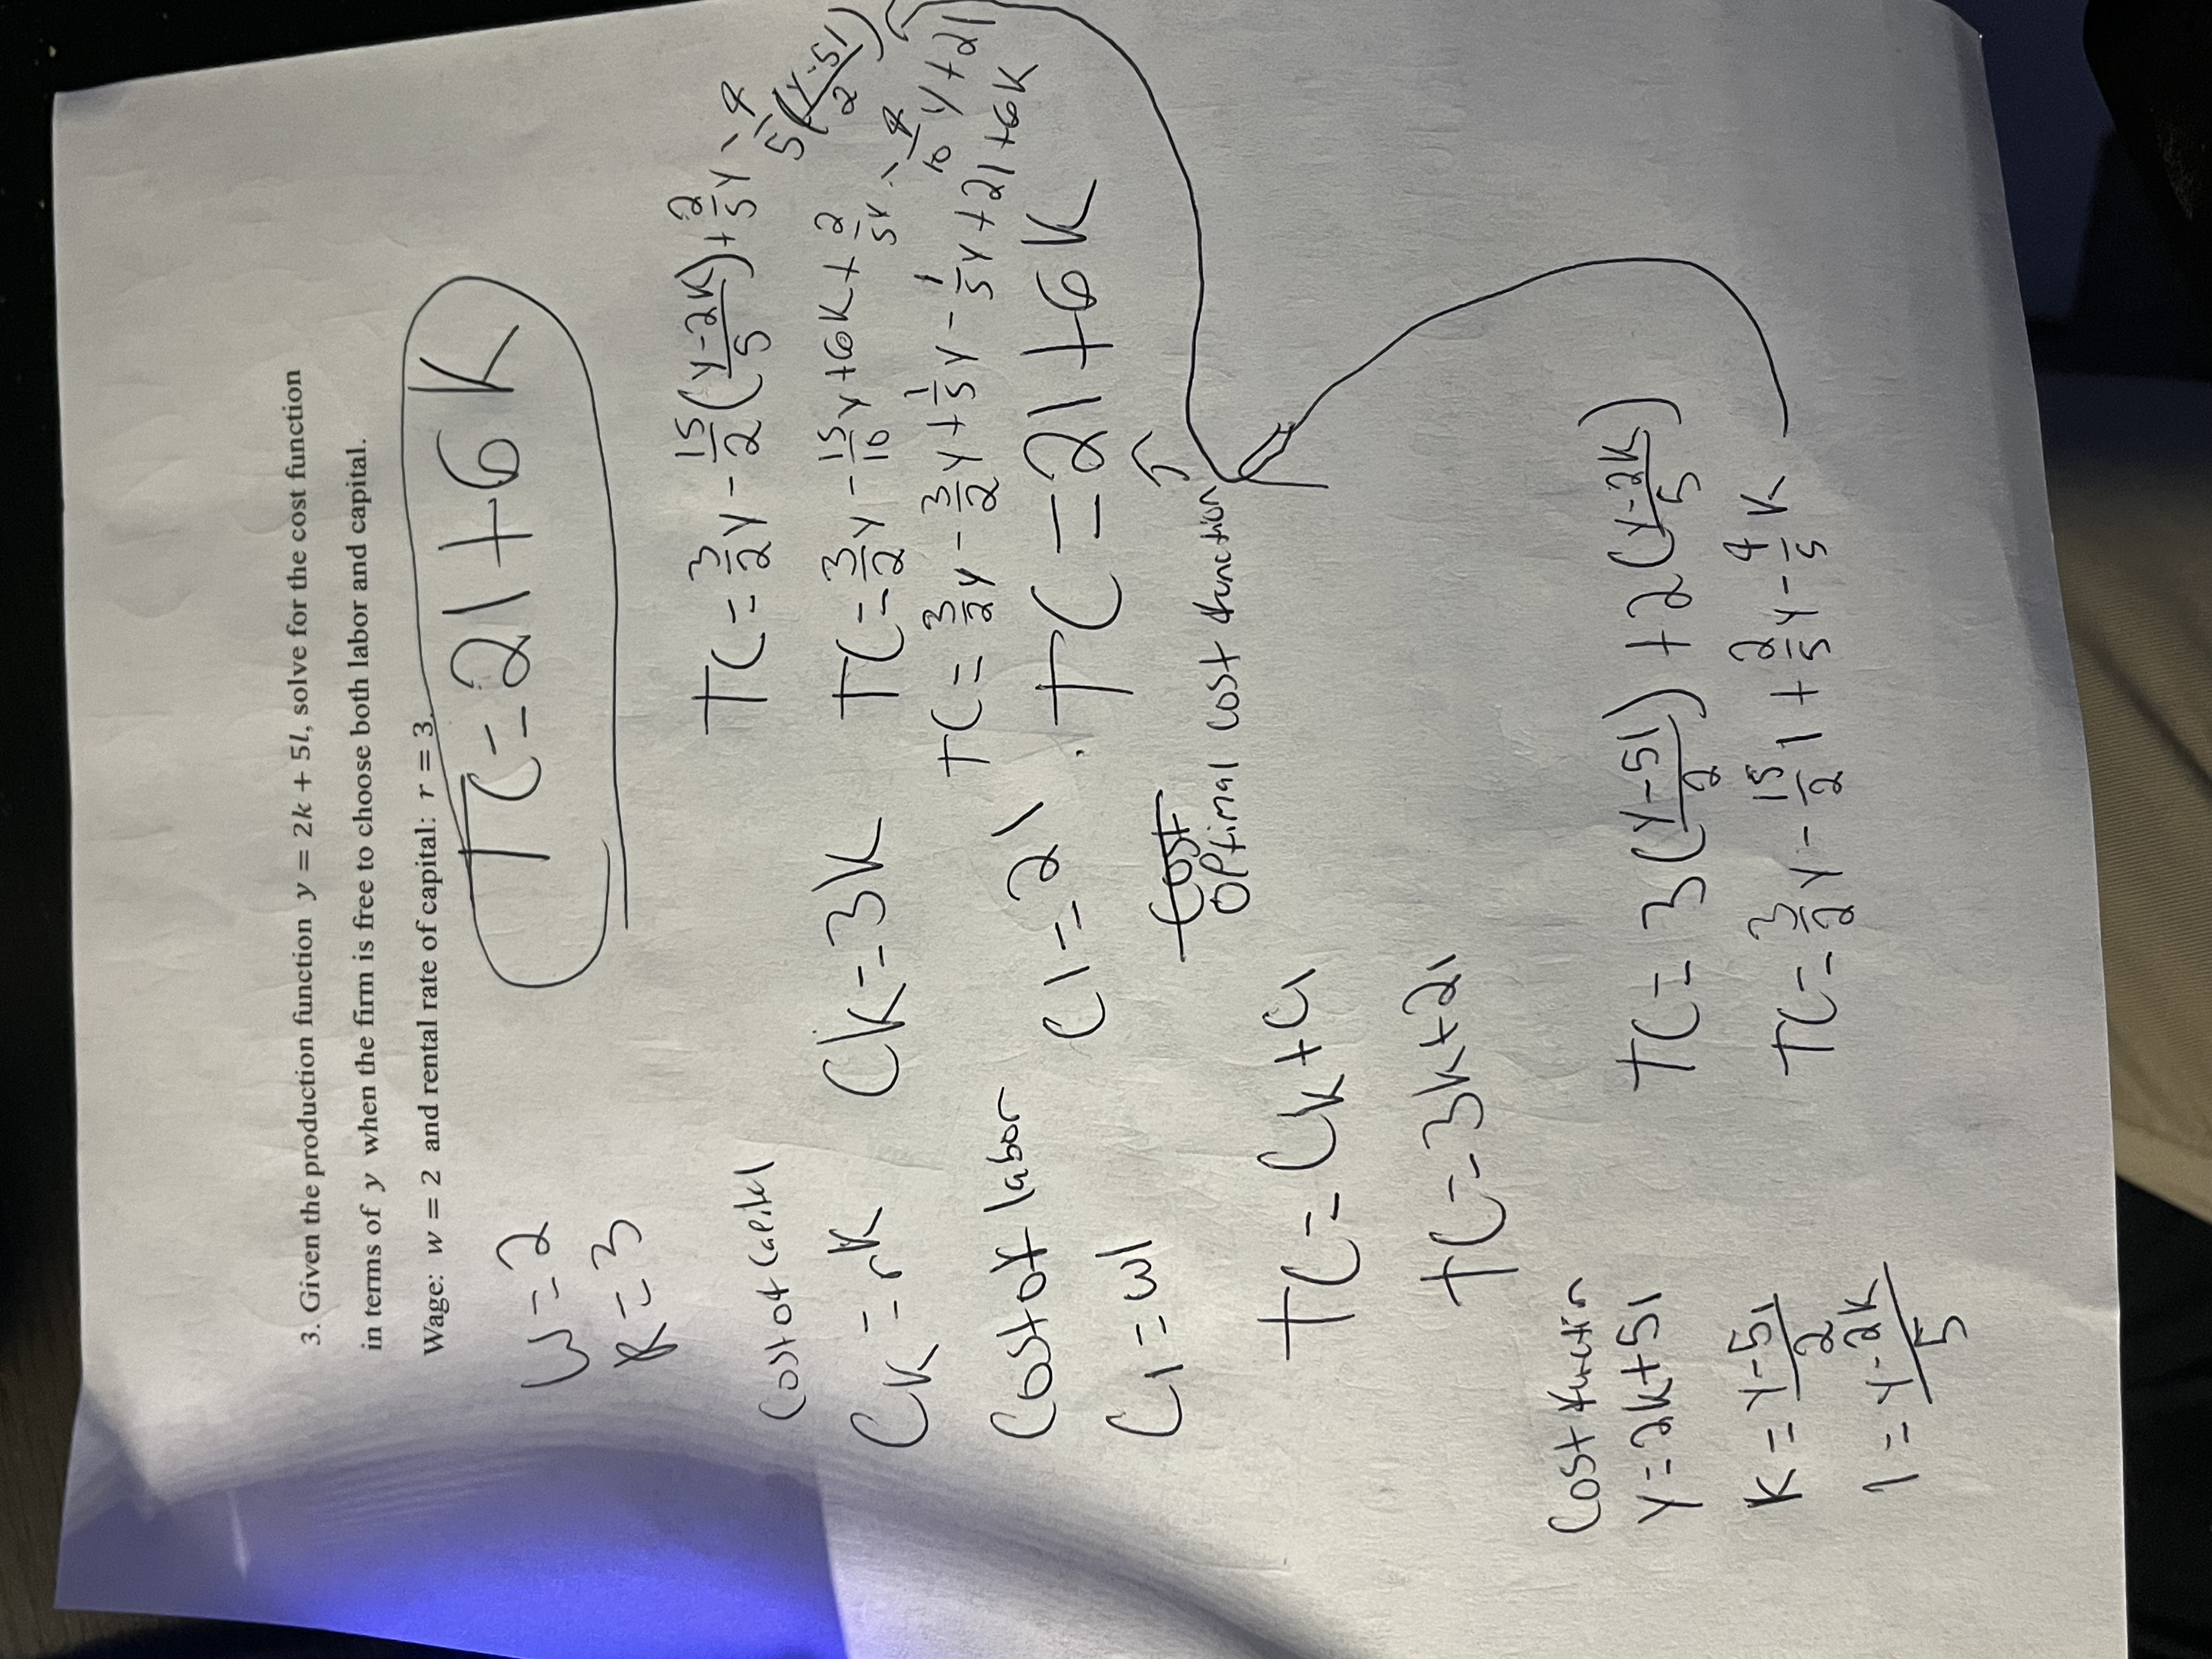 3. Given the production function y = 2k + 5l, solve for the cost function
in terms of y when the firm is free to choose both labor and capital.
Wage: w = 2 and rental rate of capital: r = 3
TC = 2l + 6K
w = 2
R = 3
Cost of Capital
CK = rK
CK = 3K
Cost of labor
Cl = wl
Cl = 2l
TC = CK + Cl
TC = 3K + 2l
Cost function
Y = 2K + 5l
K = Y-5l/2
l = Y-2K/5
TC = 3(Y-5l/2) + 2(Y-2K/5)
TC = 3/2Y - 15/2 l + 2/5Y - 4/5K
TC = 3/2Y - 15/2(Y-2K/5) + 2/5Y - 4/5(Y-5l/2)
TC = 3/2Y - 15/10Y + 6K + 2/5Y - 4/10Y + 2l
TC = 3/2Y - 3/2Y + 1/5Y - 1/5Y + 2l + 6K
TC = 2l + 6K
Cost
Optimal cost function